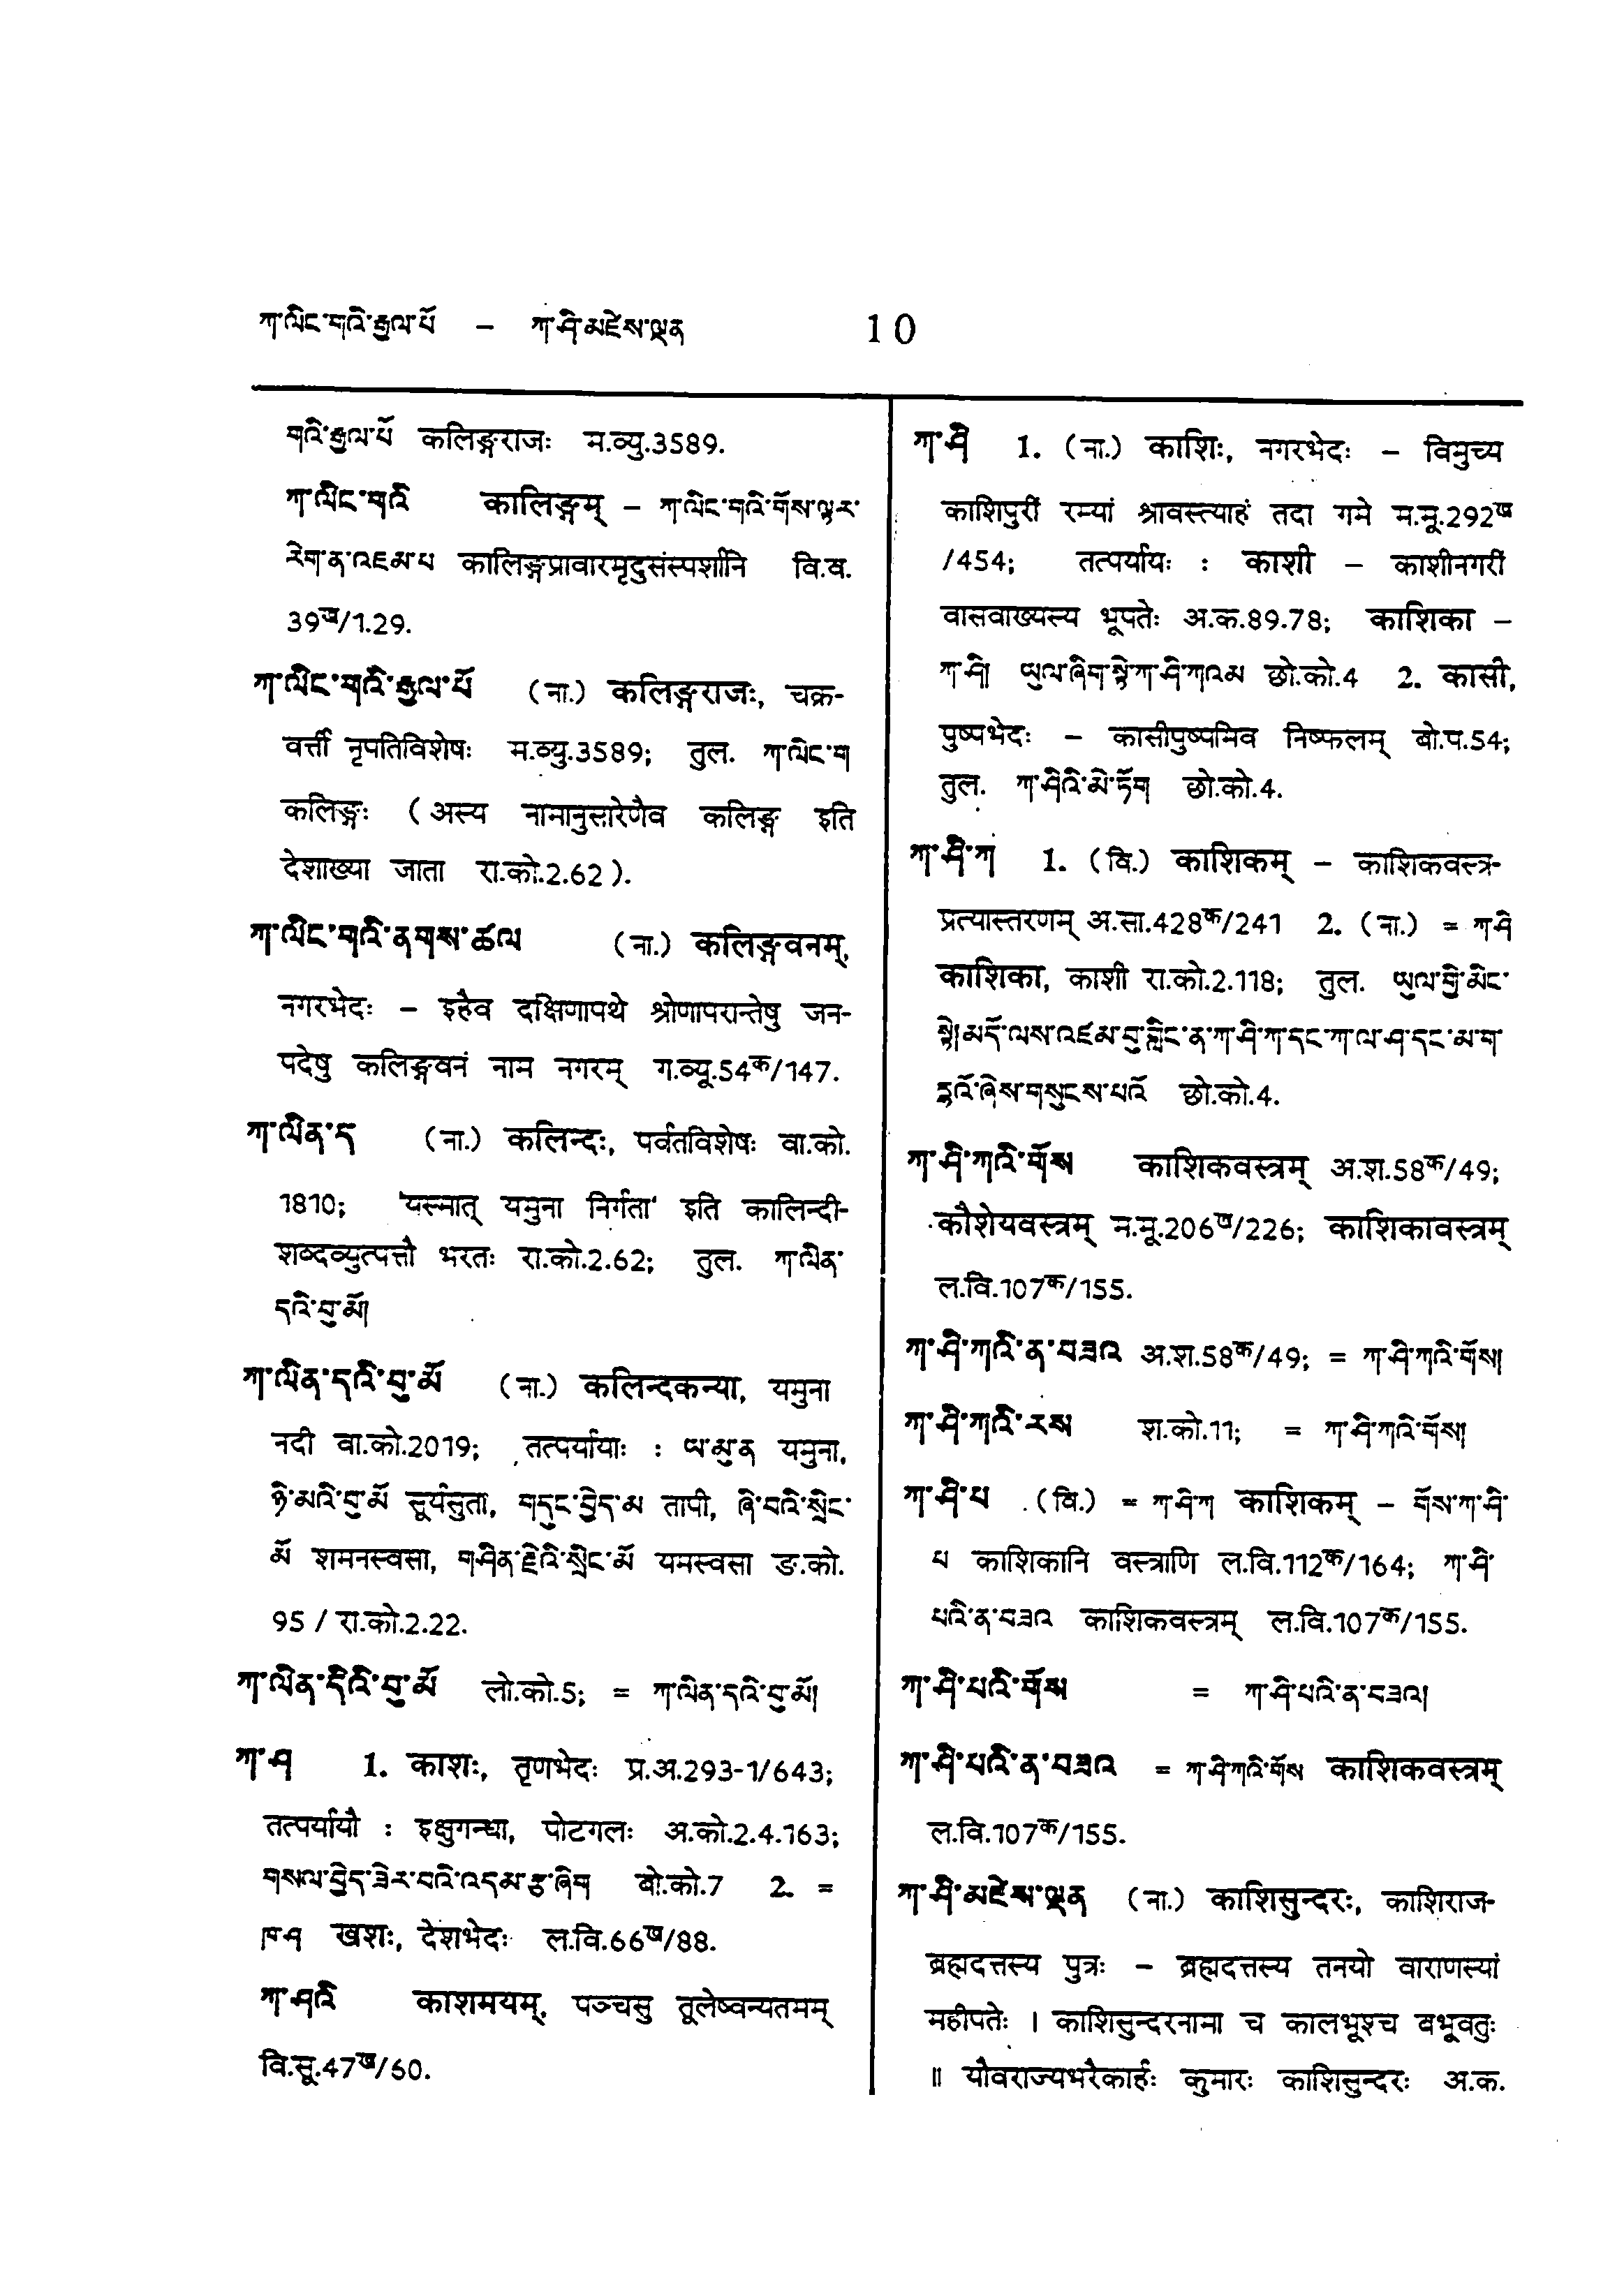 ཀ་ལིང་གའི་རྒྱལ་པོ – ཀ་ཤི་མཛེས་ལྡན 10
གའི་རྒྱལ་པོ कलिङ्गराजः म.व्यु.3589.
ཀ་ལིང་གའི कालिङ्गम् – ཀ་ལིང་གའི་གོས་ལྟར་
རེག་ན་འཇམ་པ कालिङ्गप्रावारमृदुसंस्पर्शानि वि.व.
39ख/1.29.
ཀ་ལིང་གའི་རྒྱལ་པོ (ना.) कलिङ्गराजः, चक्र-
वर्त्ती नृपतिविशेषः म.व्यु.3589; तुल. ཀ་ལིང་ག
कलिङ्गः (अस्य नामानुसारेणैव कलिङ्ग इति
देशाख्या जाता रा.को.2.62).
ཀ་ལིང་གའི་ནགས་ཚལ (ना.) कलिङ्गवनम्,
नगरभेदः – इहैव दक्षिणापथे श्रोणापरान्तेषु जन-
पदेषु कलिङ्गवनं नाम नगरम् ग.व्यू.54क/147.
ཀ་ལིན་ད (ना.) कलिन्दः, पर्वतविशेषः वा.को.
1810; 'यस्मात् यमुना निर्गता' इति कालिन्दी-
शब्दव्युत्पत्तौ भरतः रा.को.2.62; तुल. ཀ་ལིན་
དའི་བུ་མོ།
ཀ་ལིན་དའི་བུ་མོ (ना.) कलिन्दकन्या, यमुना
नदी वा.को.2019; तत्पर्यायाः : ཡ་མུ་ན यमुना,
ཉི་མའི་བུ་མོ सूर्यसुता, གདུང་བྱེད་མ तापी, ཞི་བའི་སྲིང་
མོ शमनस्वसा, གཤིན་རྗེའི་སྲིང་མོ यमस्वसा ङ.को.
95 / रा.को.2.22.
ཀ་ལིན་དིའི་བུ་མོ लो.को.5; = ཀ་ལིན་དའི་བུ་མོ།
ཀ་ཤ 1. काशः, तृणभेदः प्र.अ.293-1/643;
तत्पर्यायौ : इक्षुगन्धा, पोटगलः अ.को.2.4.163;
གསལ་བྱེད་ཟེར་བའི་འདམ་རྩྭ་ཞིག बो.को.7 2. =
ཁ་ཤ खशः, देशभेदः ल.वि.66ख/88.
ཀ་ཤའི काशमयम्, पञ्चसु तूलेष्वन्यतमम्
वि.सू.47ख/60.
ཀ་ཤི 1. (ना.) काशिः, नगरभेदः – विमुच्य
काशिपुरीं रम्यां श्रावस्त्याहं तदा गमे म.मू.292ख
/454; तत्पर्यायः : काशी – काशीनगरीं
वासवाख्यस्य भूपतेः अ.क.89.78; काशिका –
ཀ་ཤི། ཡུལ་ཞིག་སྟེ་ཀ་ཤི་ཀའམ छो.को.4 2. कासी,
पुष्पभेदः – कासीपुष्पमिव निष्फलम् बो.प.54;
तुल. ཀ་ཤིའི་མེ་ཏོག छो.को.4.
ཀ་ཤི་ཀ 1. (वि.) काशिकम् – काशिकवस्त्र-
प्रत्यास्तरणम् अ.सा.428क/241 2. (ना.) = ཀ་ཤི
काशिका, काशी रा.को.2.118; तुल. ཡུལ་གྱི་མིང་
སྟེ།མདོ་ལས་འཛམ་བུ་གླིང་ན་ཀ་ཤི་ཀ་དང་ཀ་ལ་ཤ་དང་མ་ག
དྷའོ་ཞེས་གསུངས་པའོ छो.को.4.
ཀ་ཤི་ཀའི་གོས काशिकवस्त्रम् अ.श.58क/49;
कौशेयवस्त्रम् म.मू.206ख/226; काशिकावस्त्रम्
ल.वि.107क/155.
ཀ་ཤི་ཀའི་ན་བཟའ अ.श.58क/49; = ཀ་ཤི་ཀའི་གོས།
ཀ་ཤི་ཀའི་རས श.को.11; = ཀ་ཤི་ཀའི་གོས།
ཀ་ཤི་པ (वि.) = ཀ་ཤི་ཀ काशिकम् – གོས་ཀ་ཤི་
པ काशिकानि वस्त्राणि ल.वि.112क/164; ཀ་ཤི་
པའི་ན་བཟའ काशिकवस्त्रम् ल.वि.107क/155.
ཀ་ཤི་པའི་གོས = ཀ་ཤི་པའི་ན་བཟའ།
ཀ་ཤི་པའི་ན་བཟའ = ཀ་ཤི་ཀའི་གོས काशिकवस्त्रम्
ल.वि.107क/155.
ཀ་ཤི་མཛེས་ལྡན (ना.) काशिसुन्दरः, काशिराज-
ब्रह्मदत्तस्य पुत्रः – ब्रह्मदत्तस्य तनयो वाराणस्यां
महीपतेः । काशिसुन्दरनामा च कालभूश्च बभूवतुः
॥ यौवराज्यभरैकार्हः कुमारः काशिसुन्दरः अ.क.